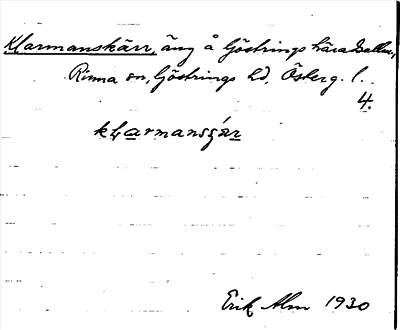 Klarmanskärr, äng å Göstrings häradsallm.,
Rinna sn, Göstrings hd, Österg. l.
4.
Erik Alm 1930